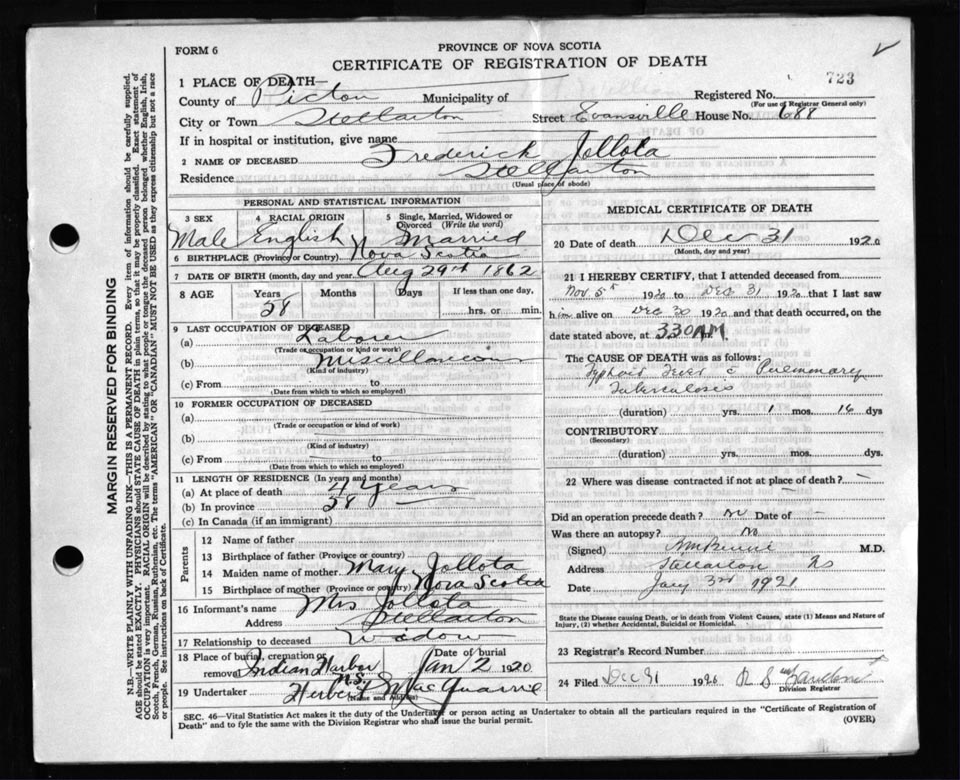 FORM 6
PROVINCE OF NOVA SCOTIA
CERTIFICATE OF REGISTRATION OF DEATH
723
1 PLACE OF DEATH—
County of Pictou Municipality of Registered No.
(For use of Registrar General only)
City or Town Stellarton Street Evansville House No. 688
If in hospital or institution, give name
2 NAME OF DECEASED Frederick Jollota
Residence Stellarton
(Usual place of abode)
PERSONAL AND STATISTICAL INFORMATION
3 SEX 4 RACIAL ORIGIN 5 Single, Married, Widowed or Divorced (Write the word)
Male English Married
6 BIRTHPLACE (Province or Country) Nova Scotia
7 DATE OF BIRTH (month, day and year) Aug 29th 1862
8 AGE Years Months Days If less than one day,
58 hrs. or min.
9 LAST OCCUPATION OF DECEASED
(a) Laborer
(Trade or occupation or kind of work)
(b) Miscellaneous
(Kind of industry)
(c) From to
(Date from which to which so employed)
10 FORMER OCCUPATION OF DECEASED
(a)
(Trade or occupation or kind of work)
(b)
(Kind of industry)
(c) From to
(Date from which to which so employed)
11 LENGTH OF RESIDENCE (In years and months)
(a) At place of death 4 years
(b) In province 58
(c) In Canada (if an immigrant)
Parents
12 Name of father
13 Birthplace of father (Province or country)
14 Maiden name of mother Mary Jollota
15 Birthplace of mother (Province or country) Nova Scotia
16 Informant's name Mrs Jollota
Address Stellarton
17 Relationship to deceased Widow
18 Place of burial, cremation or removal Indian Harbor N.S. Date of burial Jan 2 1920
19 Undertaker Herbert MacQuarrie
(Name and Address)
MEDICAL CERTIFICATE OF DEATH
20 Date of death Dec 31 1920
(Month, day and year)
21 I HEREBY CERTIFY, that I attended deceased from
Nov 5th 1920 to Dec 31 1920 that I last saw
him alive on Dec 30 1920 and that death occurred, on
the date stated above, at 3.30 A.M.
The CAUSE OF DEATH was as follows:
Typhoid Fever c Pulmonary
Tuberculosis
(duration) yrs. 1 mos. 16 dys
CONTRIBUTORY
(Secondary)
(duration) yrs. mos. dys.
22 Where was disease contracted if not at place of death?
Did an operation precede death? No Date of
Was there an autopsy? No
(Signed) M.D.
Address Stellarton NS
Date Jany 3rd 1921
State the Disease causing Death, or in death from Violent Causes, state (1) Means and Nature of Injury, (2) whether Accidental, Suicidal or Homicidal.
23 Registrar's Record Number
24 Filed Dec 31 1920
Division Registrar
SEC. 46—Vital Statistics Act makes it the duty of the Undertaker or person acting as Undertaker to obtain all the particulars required in the "Certificate of Registration of
Death" and to fyle the same with the Division Registrar who shall issue the burial permit. (OVER)
MARGIN RESERVED FOR BINDING
N.B.—WRITE PLAINLY WITH UNFADING INK—THIS IS A PERMANENT RECORD. Every item of information should be carefully supplied.
AGE should be stated EXACTLY. PHYSICIANS should STATE CAUSE OF DEATH in plain terms, so that it may be properly classified. Exact statement of
OCCUPATION is very important. RACIAL ORIGIN will be described by stating to what people or tongue the deceased person belonged whether English, Irish,
Scotch, French, German, Russian, Ruthenian, etc. The terms "AMERICAN" OR "CANADIAN" MUST NOT BE USED as they express citizenship but not a race
or people. See instructions on back of Certificate.